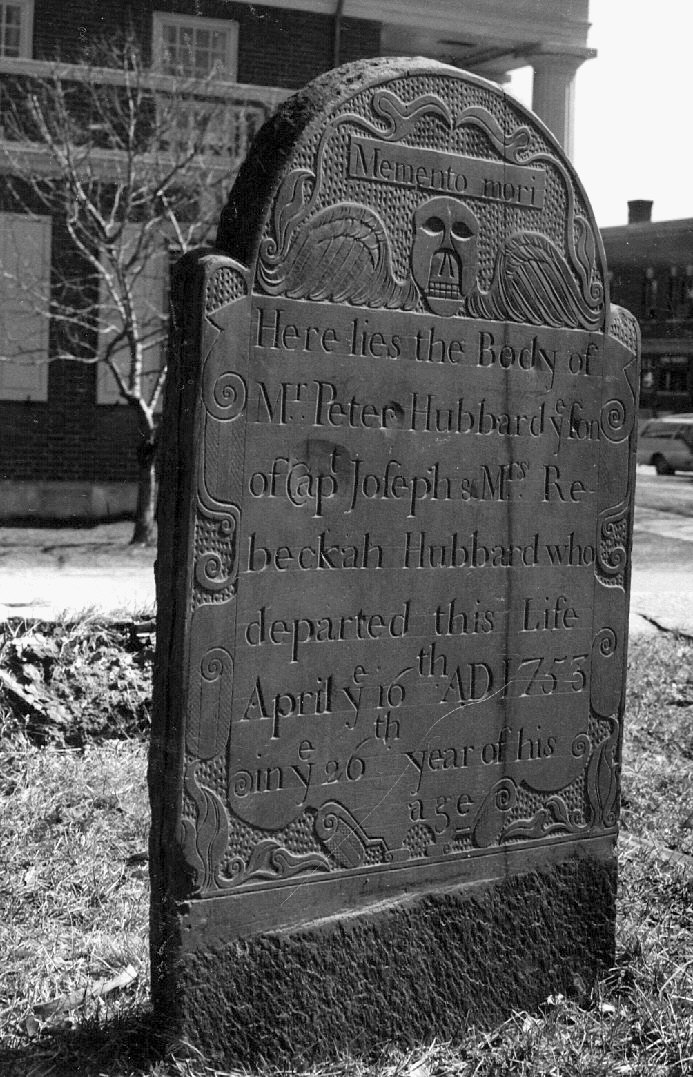 Memento mori
Here lies the Body of
Mʳ. Peter Hubbard yᵉ ſon
of Capᵗ Joſeph & Mʳˢ. Re-
beckah Hubbard who
departed this Life
April yᵉ 16ᵗʰ AD 1753
in yᵉ 26ᵗʰ year of his
age